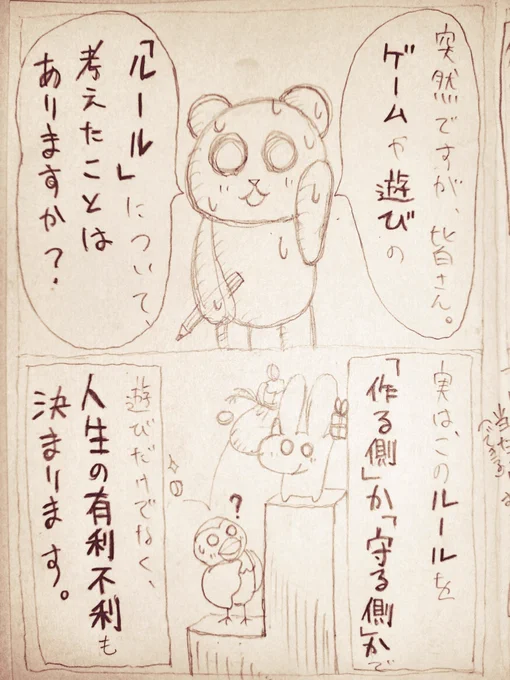 突然ですが、皆さん。
ゲームや遊びの
「ルール」について、
考えたことは
ありますか？
実は、このルールを
「作る側」か「守る側」かで
?
遊びだけでなく、
人生の有利不利も
決まります。